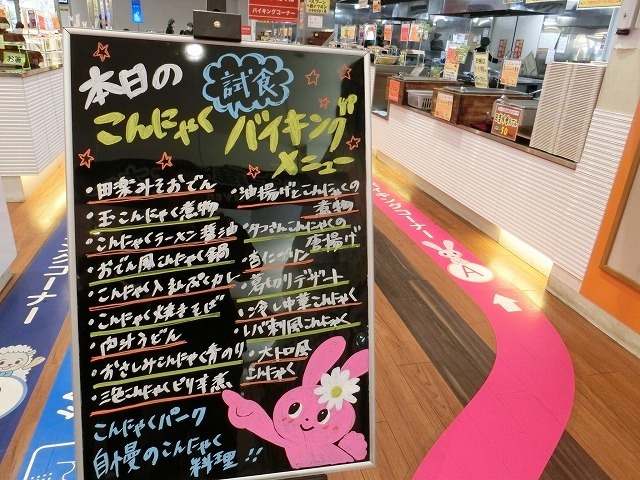 本日の
試食
こんにゃく バイキング
メニュー
・田楽みそおでん
・玉こんにゃく煮物
・こんにゃくラーメン醤油
・おでん風こんにゃく鍋
・こんにゃく入
カレー
・こんにゃく焼きそば
・肉汁うどん
・おさしみこんにゃく青のり
・三色こんにゃくピリ辛煮
・油揚げとこんにゃくの
煮物
・タコさんこんにゃくの
唐揚げ
・杏仁プリン
・葛切りデザート
・冷し中華こんにゃく
・レバ刺風こんにゃく
・大トロ風
こんにゃく
こんにゃくパーク
自慢のこんにゃく
料理!!
コーナー
コーナー
A
バイキングコーナー